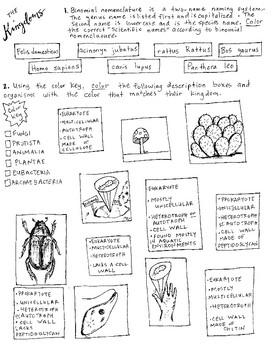 THE
Kingdoms
1. Binomial nomenclature is a two-name naming system.
The genus name is listed first and is capitalized. The
second name is lowercase and is the specific name. Color
the correct "scientific names" according to binomial
nomenclature:
Felis domesticus
acinonyx jubatus
rattus Rattus
Bos taurus
Homo sapiens
canis lupus
Panthera leo
2. Using the color key, color the following description boxes and
organisms with the color that matches their kingdom.
FUNGI
PROTISTA
ANIMALIA
PLANTAE
EUBACTERIA
ARCHAEBACTERIA
• EUKARYOTE
• MULTICELLULAR
• AUTOTROPH
• CELL WALL
MADE OF
CELLULOSE
• EUKARYOTE
• MULTICELLULAR
• HETEROTROPH
LACKS A CELL
WALL
EUKARYOTE
• MOSTLY
UNICELLULAR
• HETEROTROPH OR
AUTOTROPH
• CELL WALL
• FOUND MOSTLY
IN AQUATIC
ENVIRONMENTS
• PROKARYOTE
• UNICELLULAR
• HETEROTROPH OR
AUTOTROPH
• CELL WALL
MADE OF
PEPTIDOGLYCAN
• PROKARYOTE
• UNICELLULAR
• HETEROTROPH
OR AUTOTROPH
• CELL WALL
LACKS
PEPTIDOGLYCAN
EUKARYOTE
• MOSTLY
MULTICELLULAR
• HETEROTROPH
• CELL WALL
MADE OF
CHITIN